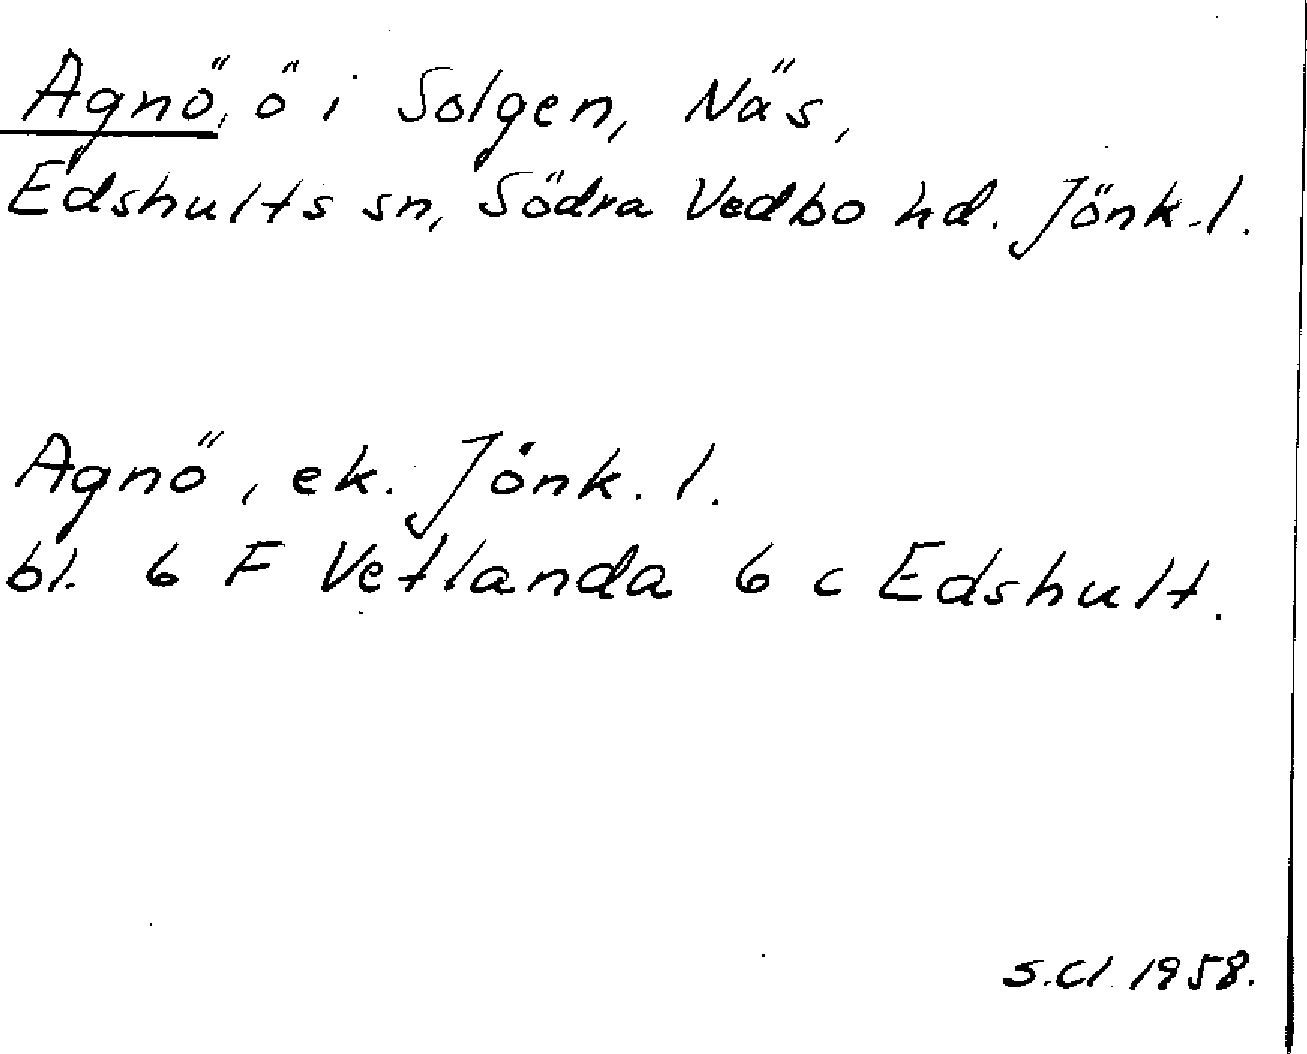 Agnö, ö i Solgen, Näs,
Edshults sn, Södra Vedbo hd. Jönk.l.
Agnö, ek. Jönk. l.
bl. 6 F Vetlanda 6 c Edshult.
S.Cl. 1958.